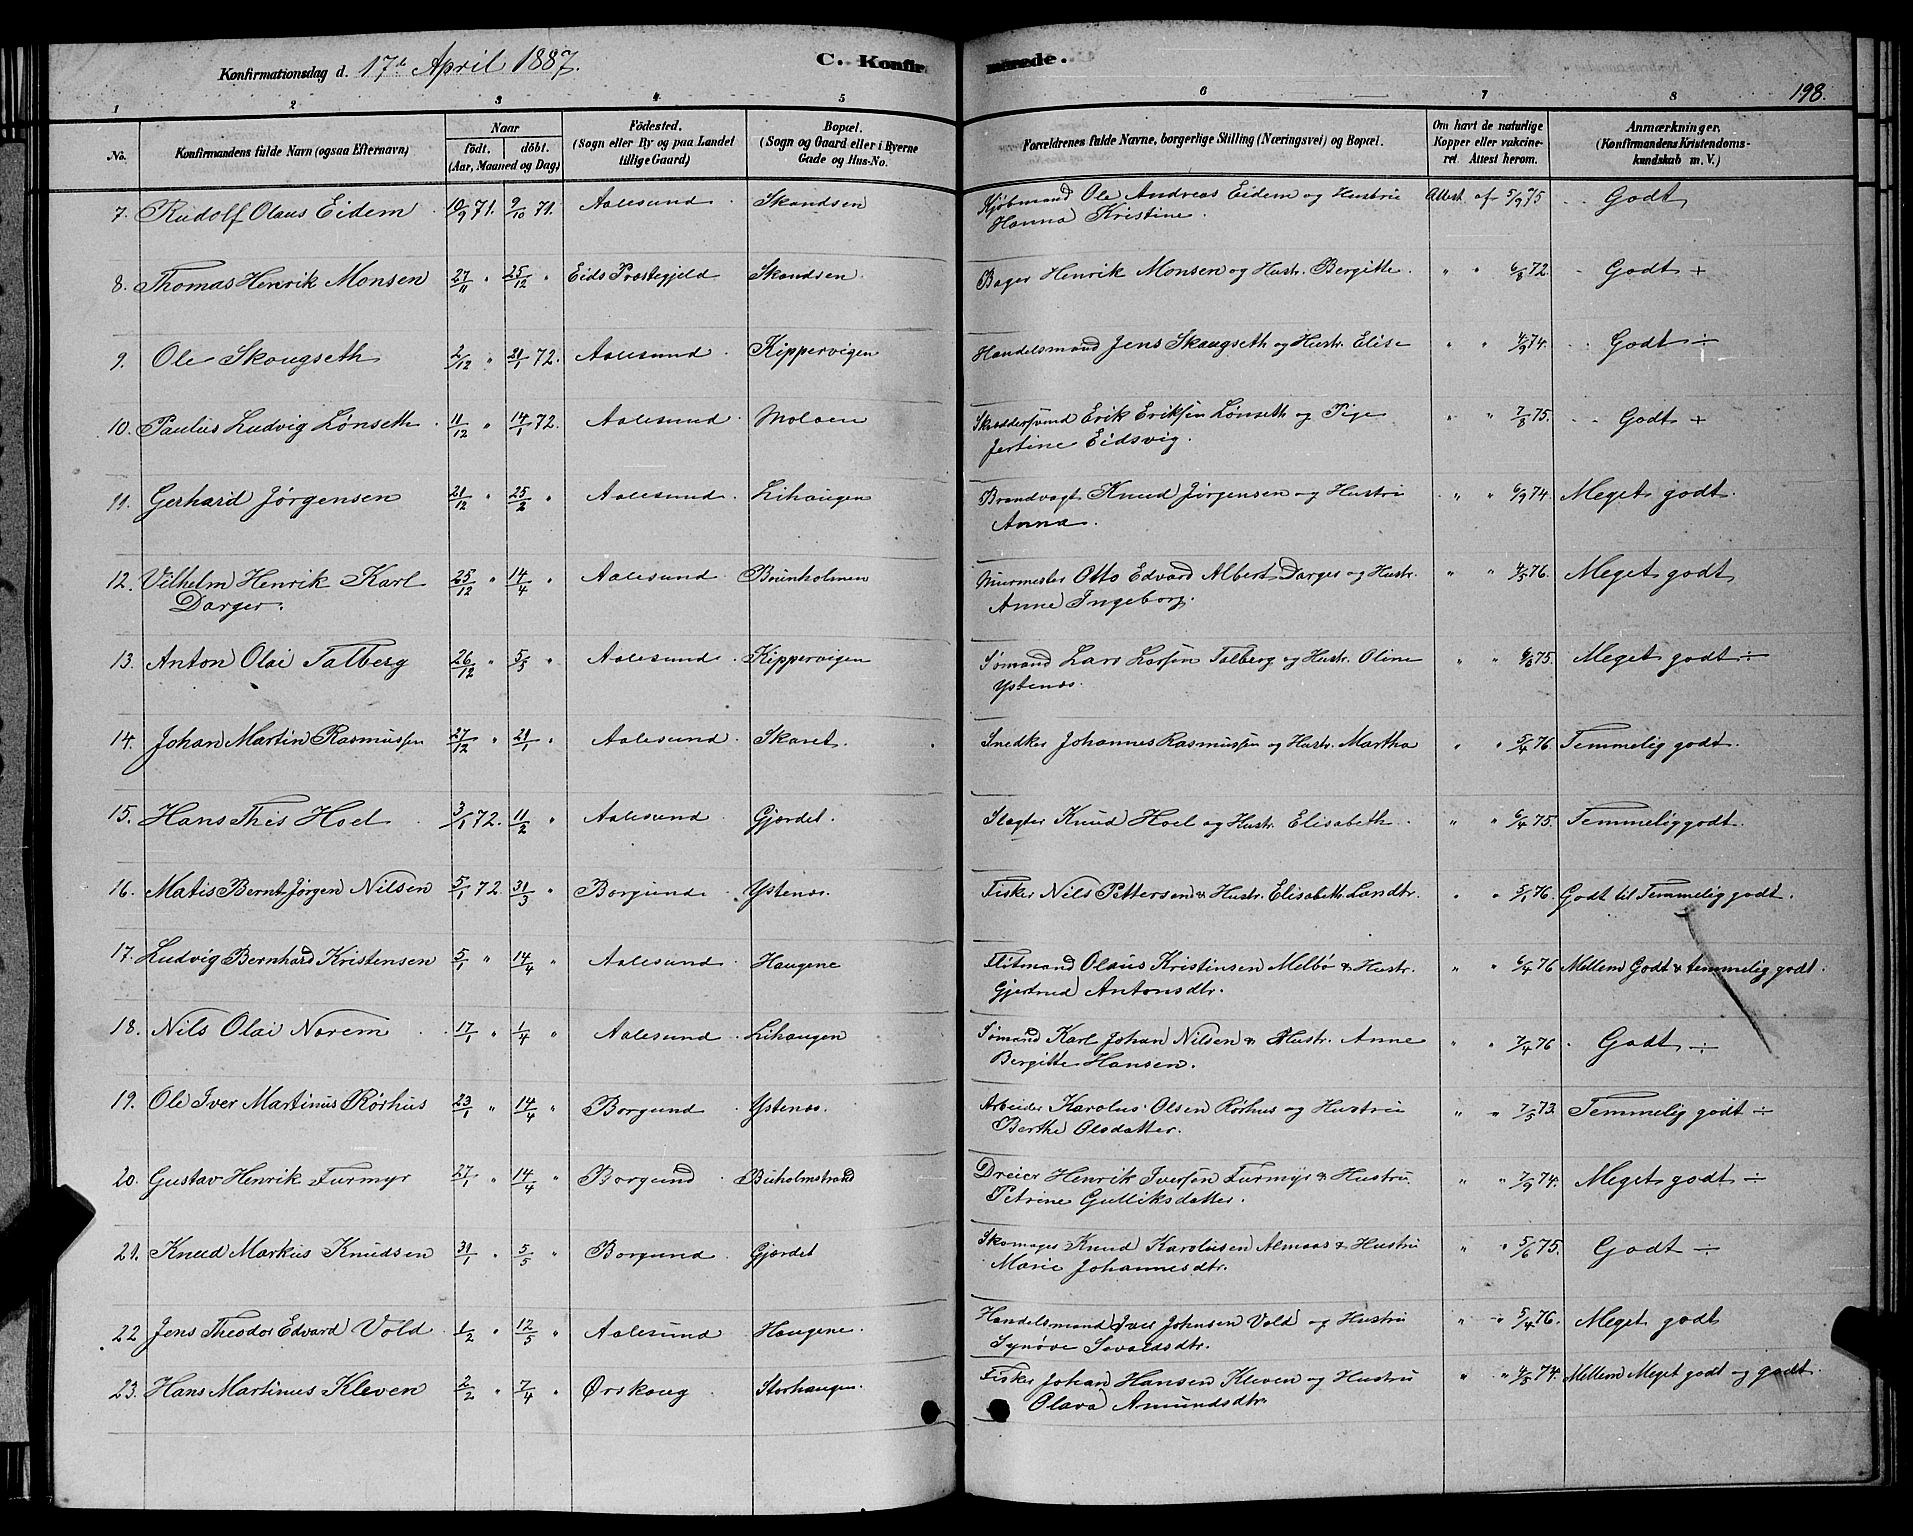 Konfirmationsdag d. 17de April 1887. C. Konfirmerede. 198.
1 2 3 4 5 6 7 8
No. Konfirmandens fulde Navn (ogsaa Efternavn) Naar född. döbt. (Aar, Maaned og Dag) Födested. (Sogn eller By og paa Landet tillige Gaard) Bopæl. (Sogn og Gaard eller i Byerne Gade og Hus-No. Forældrenes fulde Navne, borgerlige Stilling (Næringsvei) og Bopæl. Om havt de naturlige Kopper eller vakcineret. Attest herom. Anmærkninger. (Konfirmandens Kristendomskundskab m. V.)
7. Rudolf Olaus Eidem 10/9 71. 9/10 71. Aalesund Skandsen Kjøbmand Ole Andreas Eidem og Hustru Attest af 5/9 75 Godt
Hanna Kristine.
8. Thomas Henrik Monsen 27/11 " 25/12 " Eids Præstegjeld Skandsen Bager Henrik Monsen og Hustr. Bergitte. " " 6/8 72 Godt +
9. Ole Skougseth 2/12 " 21/1 72. Aalesund Kippervigen Handelsmand Jens Skaugseth og Hustr. Elise " " 4/9 74. Godt ÷
10. Paulus Ludvig Lønseth 11/12 " 14/1 72. Aalesund Moloen Skræddersvend Erik Eriksen Lønseth og Pige " " 7/8 75. Godt +
Jertine Eidsvig.
11. Gerhard Jørgensen 21/12 " 25/2 " Aalesund Lihaugen Brandvagt Knud Jørgensen og Hustru " " 6/9 74. Meget godt.
Anna.
12. Vilhelm Henrik Karl 25/12 " 14/4 " Aalesund Brunholmen Murmester Otto Edvard Albert Darger og Hustr. " " 4/5 76. Meget godt
Darger. Anne Ingeborg.
13. Anton Olai Talberg 26/12 " 5/5 " Aalesund Kippervigen Sømand Lars Larsen Talberg og Hustr. Oline " " 6/6 75. Meget godt ÷
Ystenæs.
14. Johan Martin Rasmussen 27/12 " 21/1 " Aalesund Skaret. Snedker Johannes Rasmussen og Hustr. Martha " " 5/4 76. Temmelig godt.
15. Hans Thes Hoel 3/1 72. 11/2 " Aalesund Gjærdet. Slagter Knud Hoel og Hustr. Elisabeth " " 6/4 75. Temmelig godt.
16. Matis Bernt Jørgen Nilsen 5/1 72 31/3 " Borgund Ystenæs. Fisker Nils Pettersen & Hustr. Elisabeth Larsdtr. " " 5/1 76. Godt til Temmelig godt.
17. Ludvig Bernhard Kristensen 5/1 " 14/4 " Aalesund Haugene Flitmand Olaus Kristinsen Melbø & Hustr. " " 6/4 76 Mellem Godt & temmelig godt.
Gjertrud Antonsdtr.
18. Nils Olai Norem 17/1 " 1/4 " Aalesund Lihaugen Sømand Karl Johan Nilsen & Hustr. Anne " " 7/4 76 Godt ÷
Bergitte Hansen.
19. Ole Iver Martinus Rørhus 23/1 " 14/4 " Borgund Ystenæs. Arbeider Karolus Olsen Rørhus og Hustru " " 7/5 73. Temmelig godt ÷
Berthe Olsdatter.
20. Gustav Henrik Furmyr 27/1 " 14/4 " Borgund Buholmstrand Dreier Henrik Iversen Furmyr & Hustru. " " 7/9 74. Meget godt ÷
Petrine Gulliksdatter.
21. Knud Markus Knudsen 31/1 " 5/5 " Borgund Gjærdet Skomager Knud Karolusen Almaas & Hustru " " 5/6 75. Godt ÷
Marie Johannesdtr.
22 Jens Theodor Edvard Vold. 1/2 " 12/5 " Aalesund Haugene. Handelsmand Iver Johnsen Vold og Hustru " " 5/4 76. Meget godt
Synøve Sevaldsdtr.
23. Hans Martinus Kleven 2/2 " 7/4 " Ørskoug Storhaugen. Fisker Johan Hansen Kleven og Hustru " " 4/8 74. Mellem Meget godt og godt.
Olava Amundsdtr.